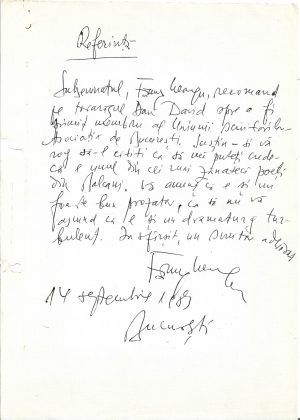 Referință
Subsemnatul, Fănuș Neagu, recomand
pe tovarășul Dan David spre a fi
primit membru al Uniunii Scriitorilor-
Asociația de București. Susțin - și vă
rog să-l citiți ca să mă puteți crede-
că e unul din cei mai zănateci poeți
din Balcani. Vă anunț că e și un
foarte bun prozator, ca să nu vă
ascund că e și un dramaturg tur-
bulent. În sfîrșit, un scriitor adevărat
Fănuș Neagu
14 septembrie 1989
București